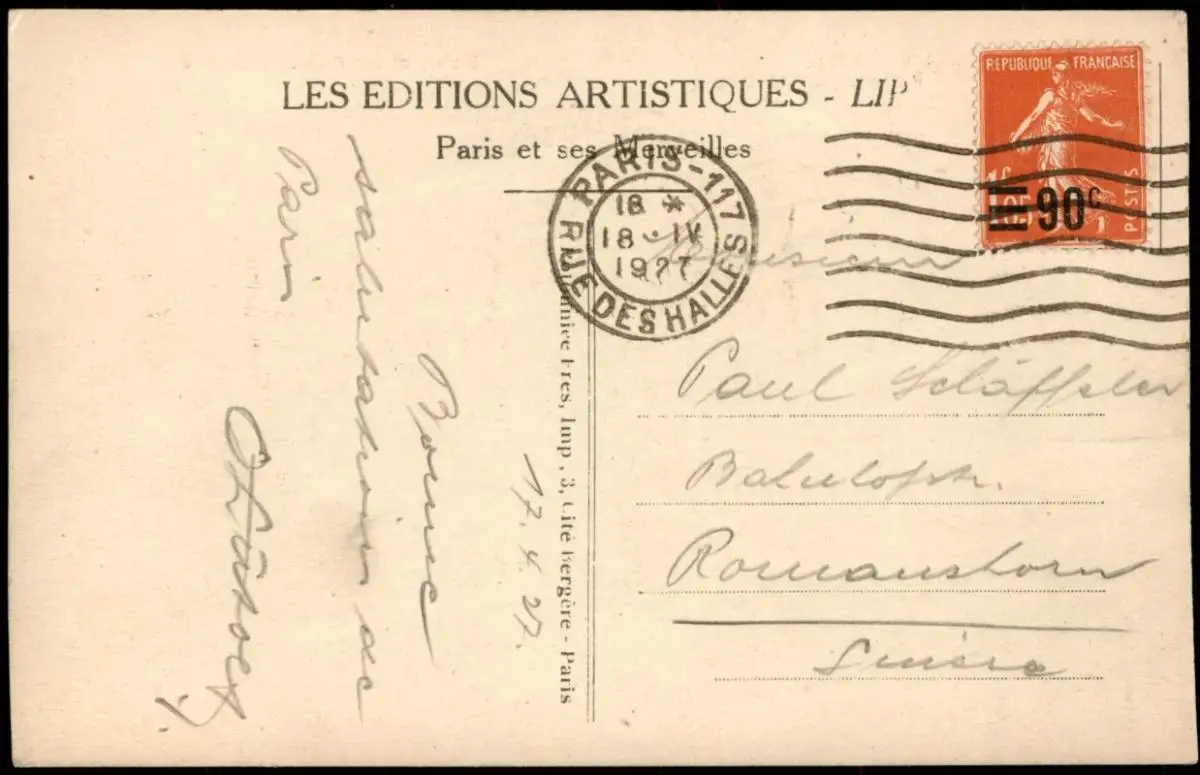 LES EDITIONS ARTISTIQUES - LIP
Paris et ses Merveilles
REPUBLIQUE FRANÇAISE
POSTES
90c
PARIS-117
18 *
18 - IV
1927
RUE DES HALLES
17. 4. 27.
Bonne
salutation de
Paris
Fres, Imp., 3, Cité Bergère - Paris
Monsieur
Paul
Romanshorn
Suisse